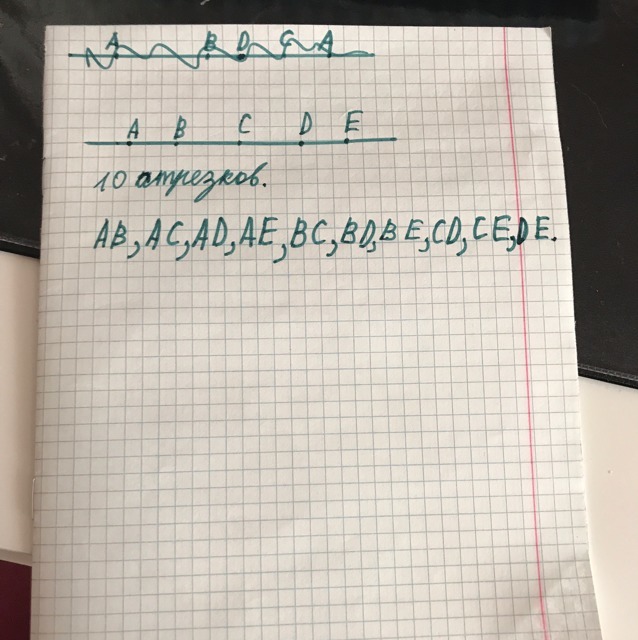 A B D C A
A B C D E
10 отрезков.
AB, AC, AD, AE, BC, BD, BE, CD, CE, DE.